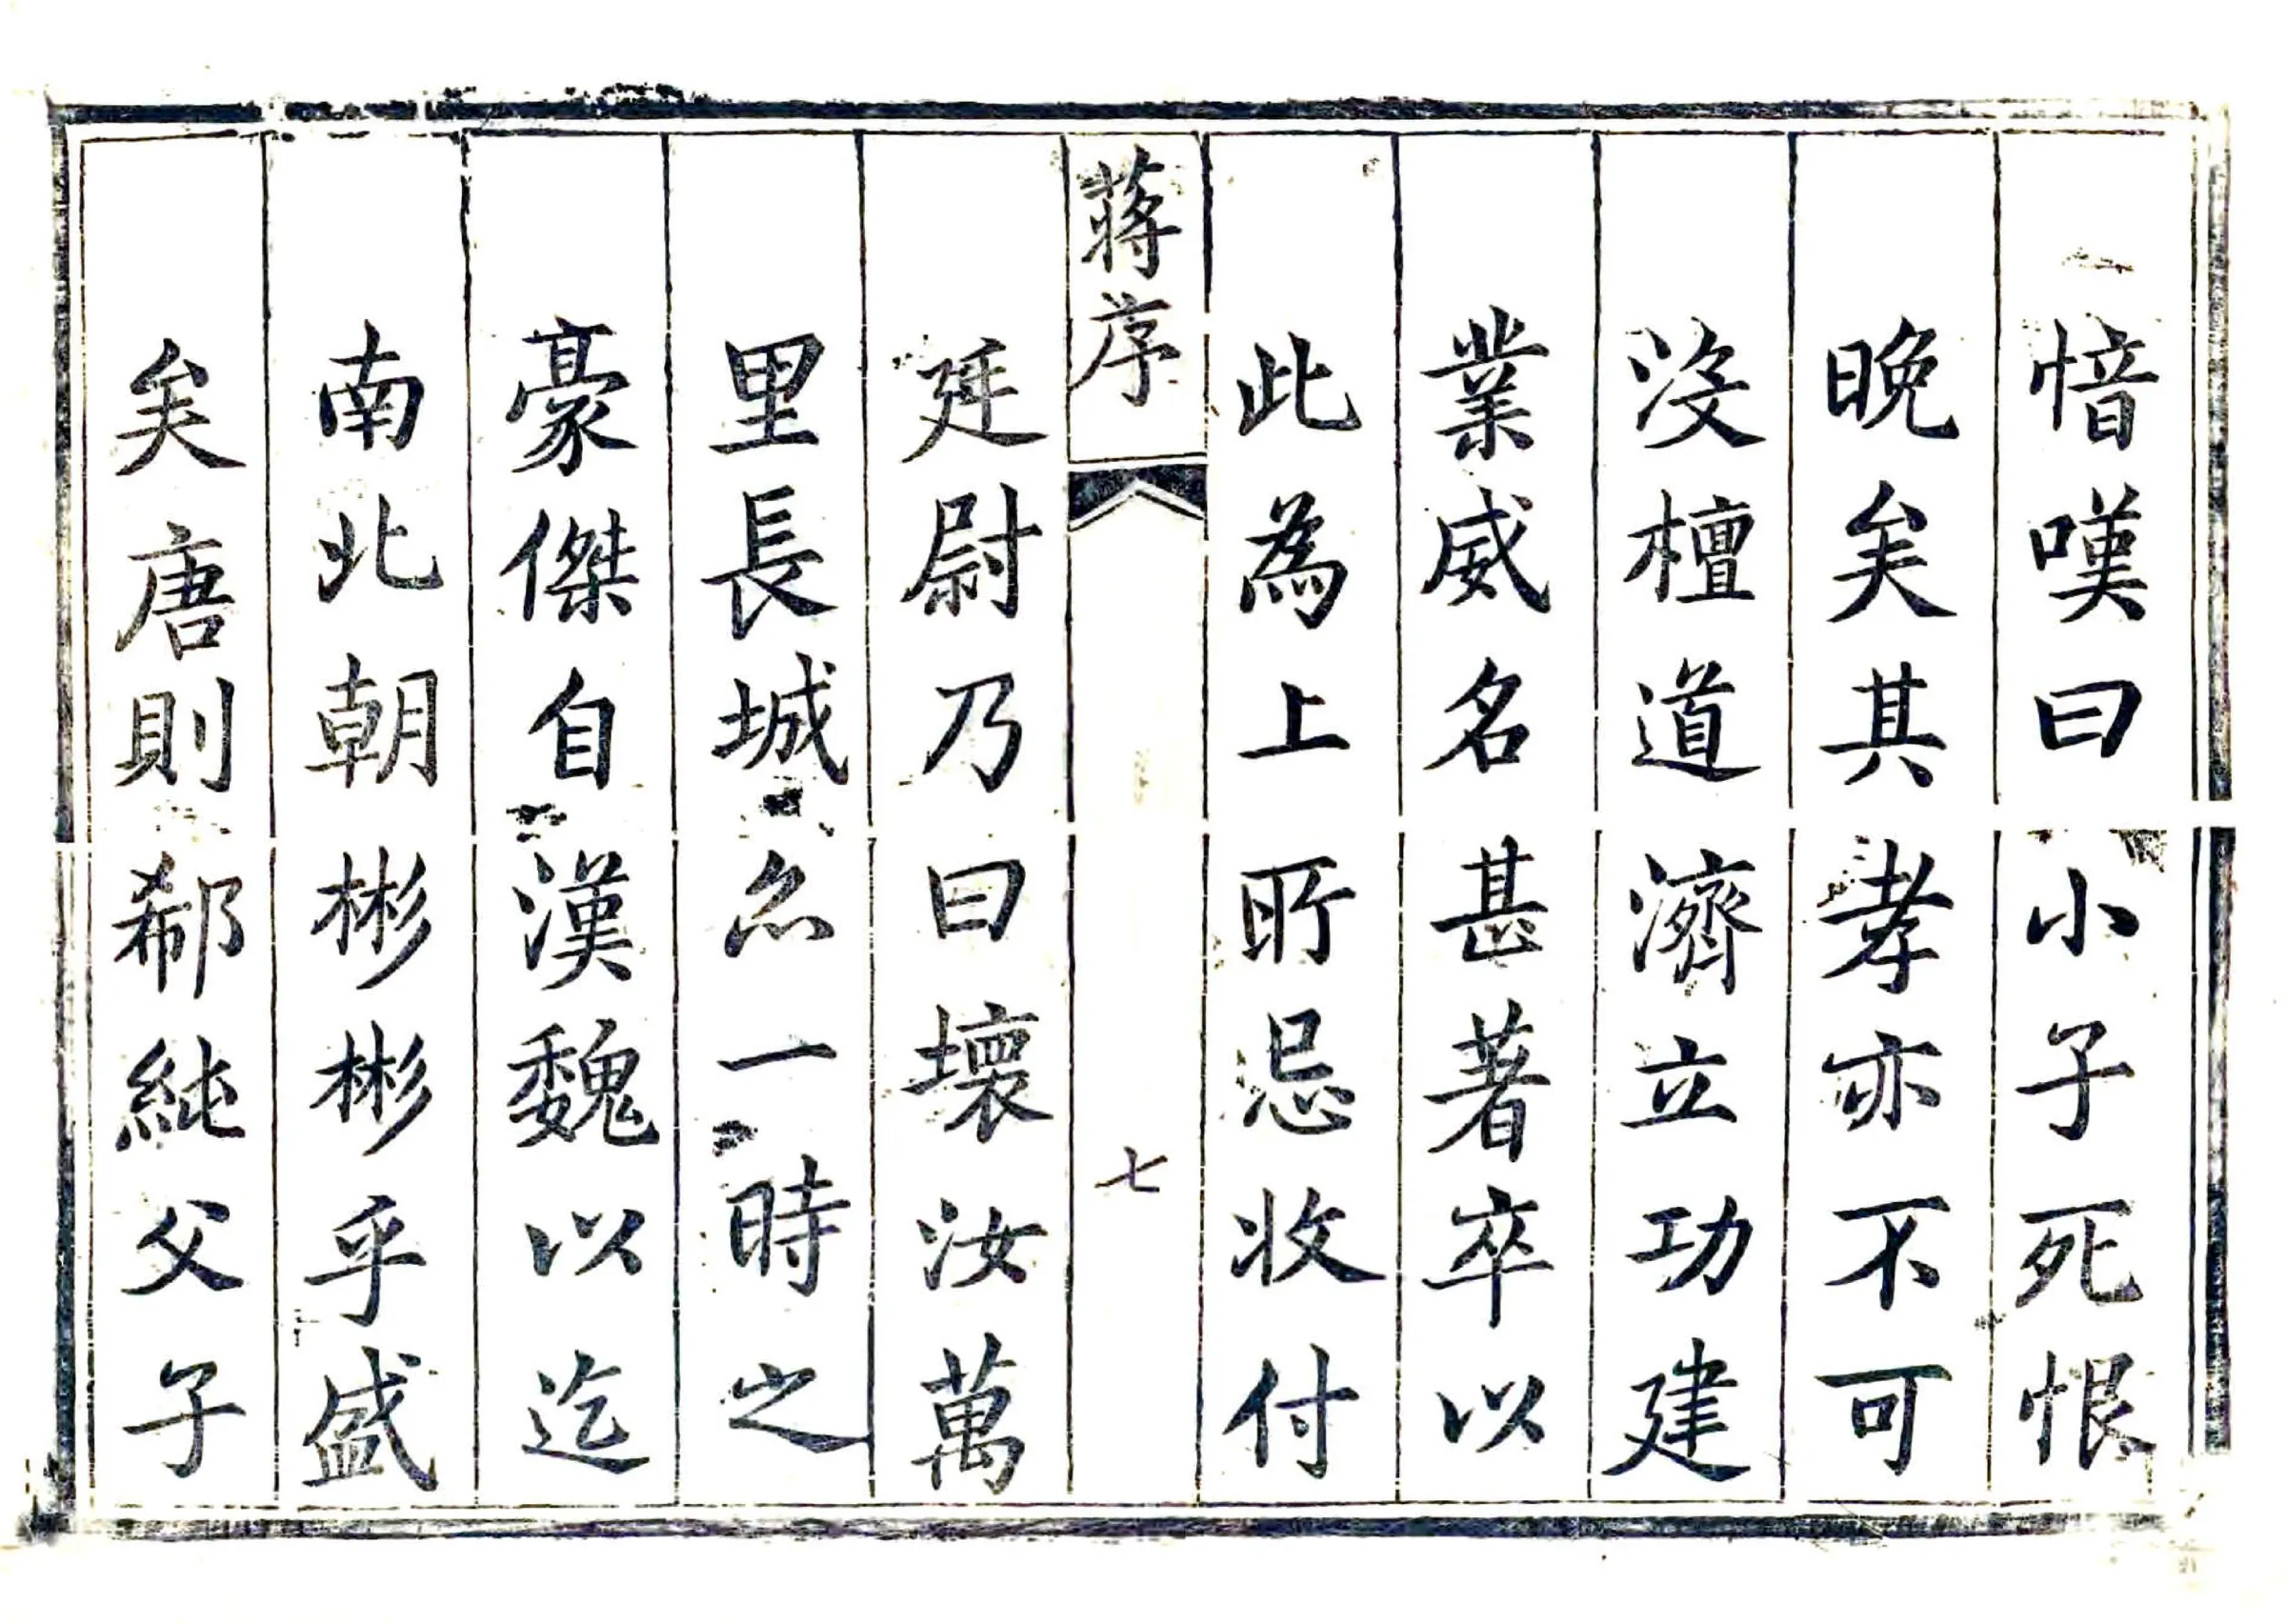 愔嘆曰小子死恨
晚矣其孝亦不可
沒檀道濟立功建
業威名甚著卒以
此為上所忌收付
蔣序
七
廷尉乃曰壞汝萬
里長城亦一時之
豪傑自漢魏以迄
南北朝彬彬乎盛
矣唐則郗純父子